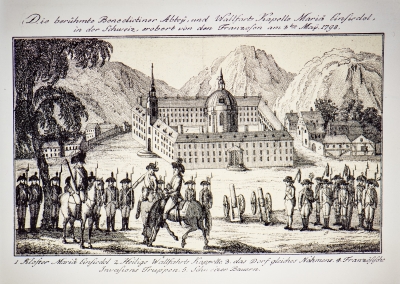 Die berühmte Benedictiner Abtey, und Wallfarts Kapelle Mariä Einsiedel,
in der Schweiz, erobert von den Franzosen am 2ten May. 1798.
1 Kloster Mariä Einsiedel 2. Heilige Wallfahrts Kapelle 3. das Dorf gleiches Nahmens. 4. Französische
Invasions Truppen. 5. Schweizer Bauern.